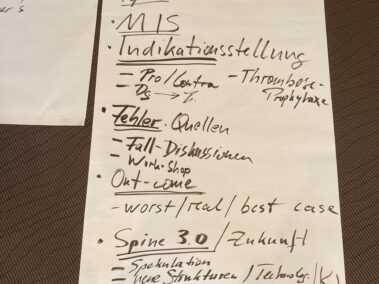 er's
• MIS
• Indikationsstellung
– Pro/Contra – Thrombose-
– Dg → % Prophylaxe
• Fehler-Quellen
– Fall-Diskussionen
– Work-Shop
• Out-come
– worst/real/best case
• Spine 3.0/Zukunft
– Spekulation
– neue Strukturen/Technolog./KI